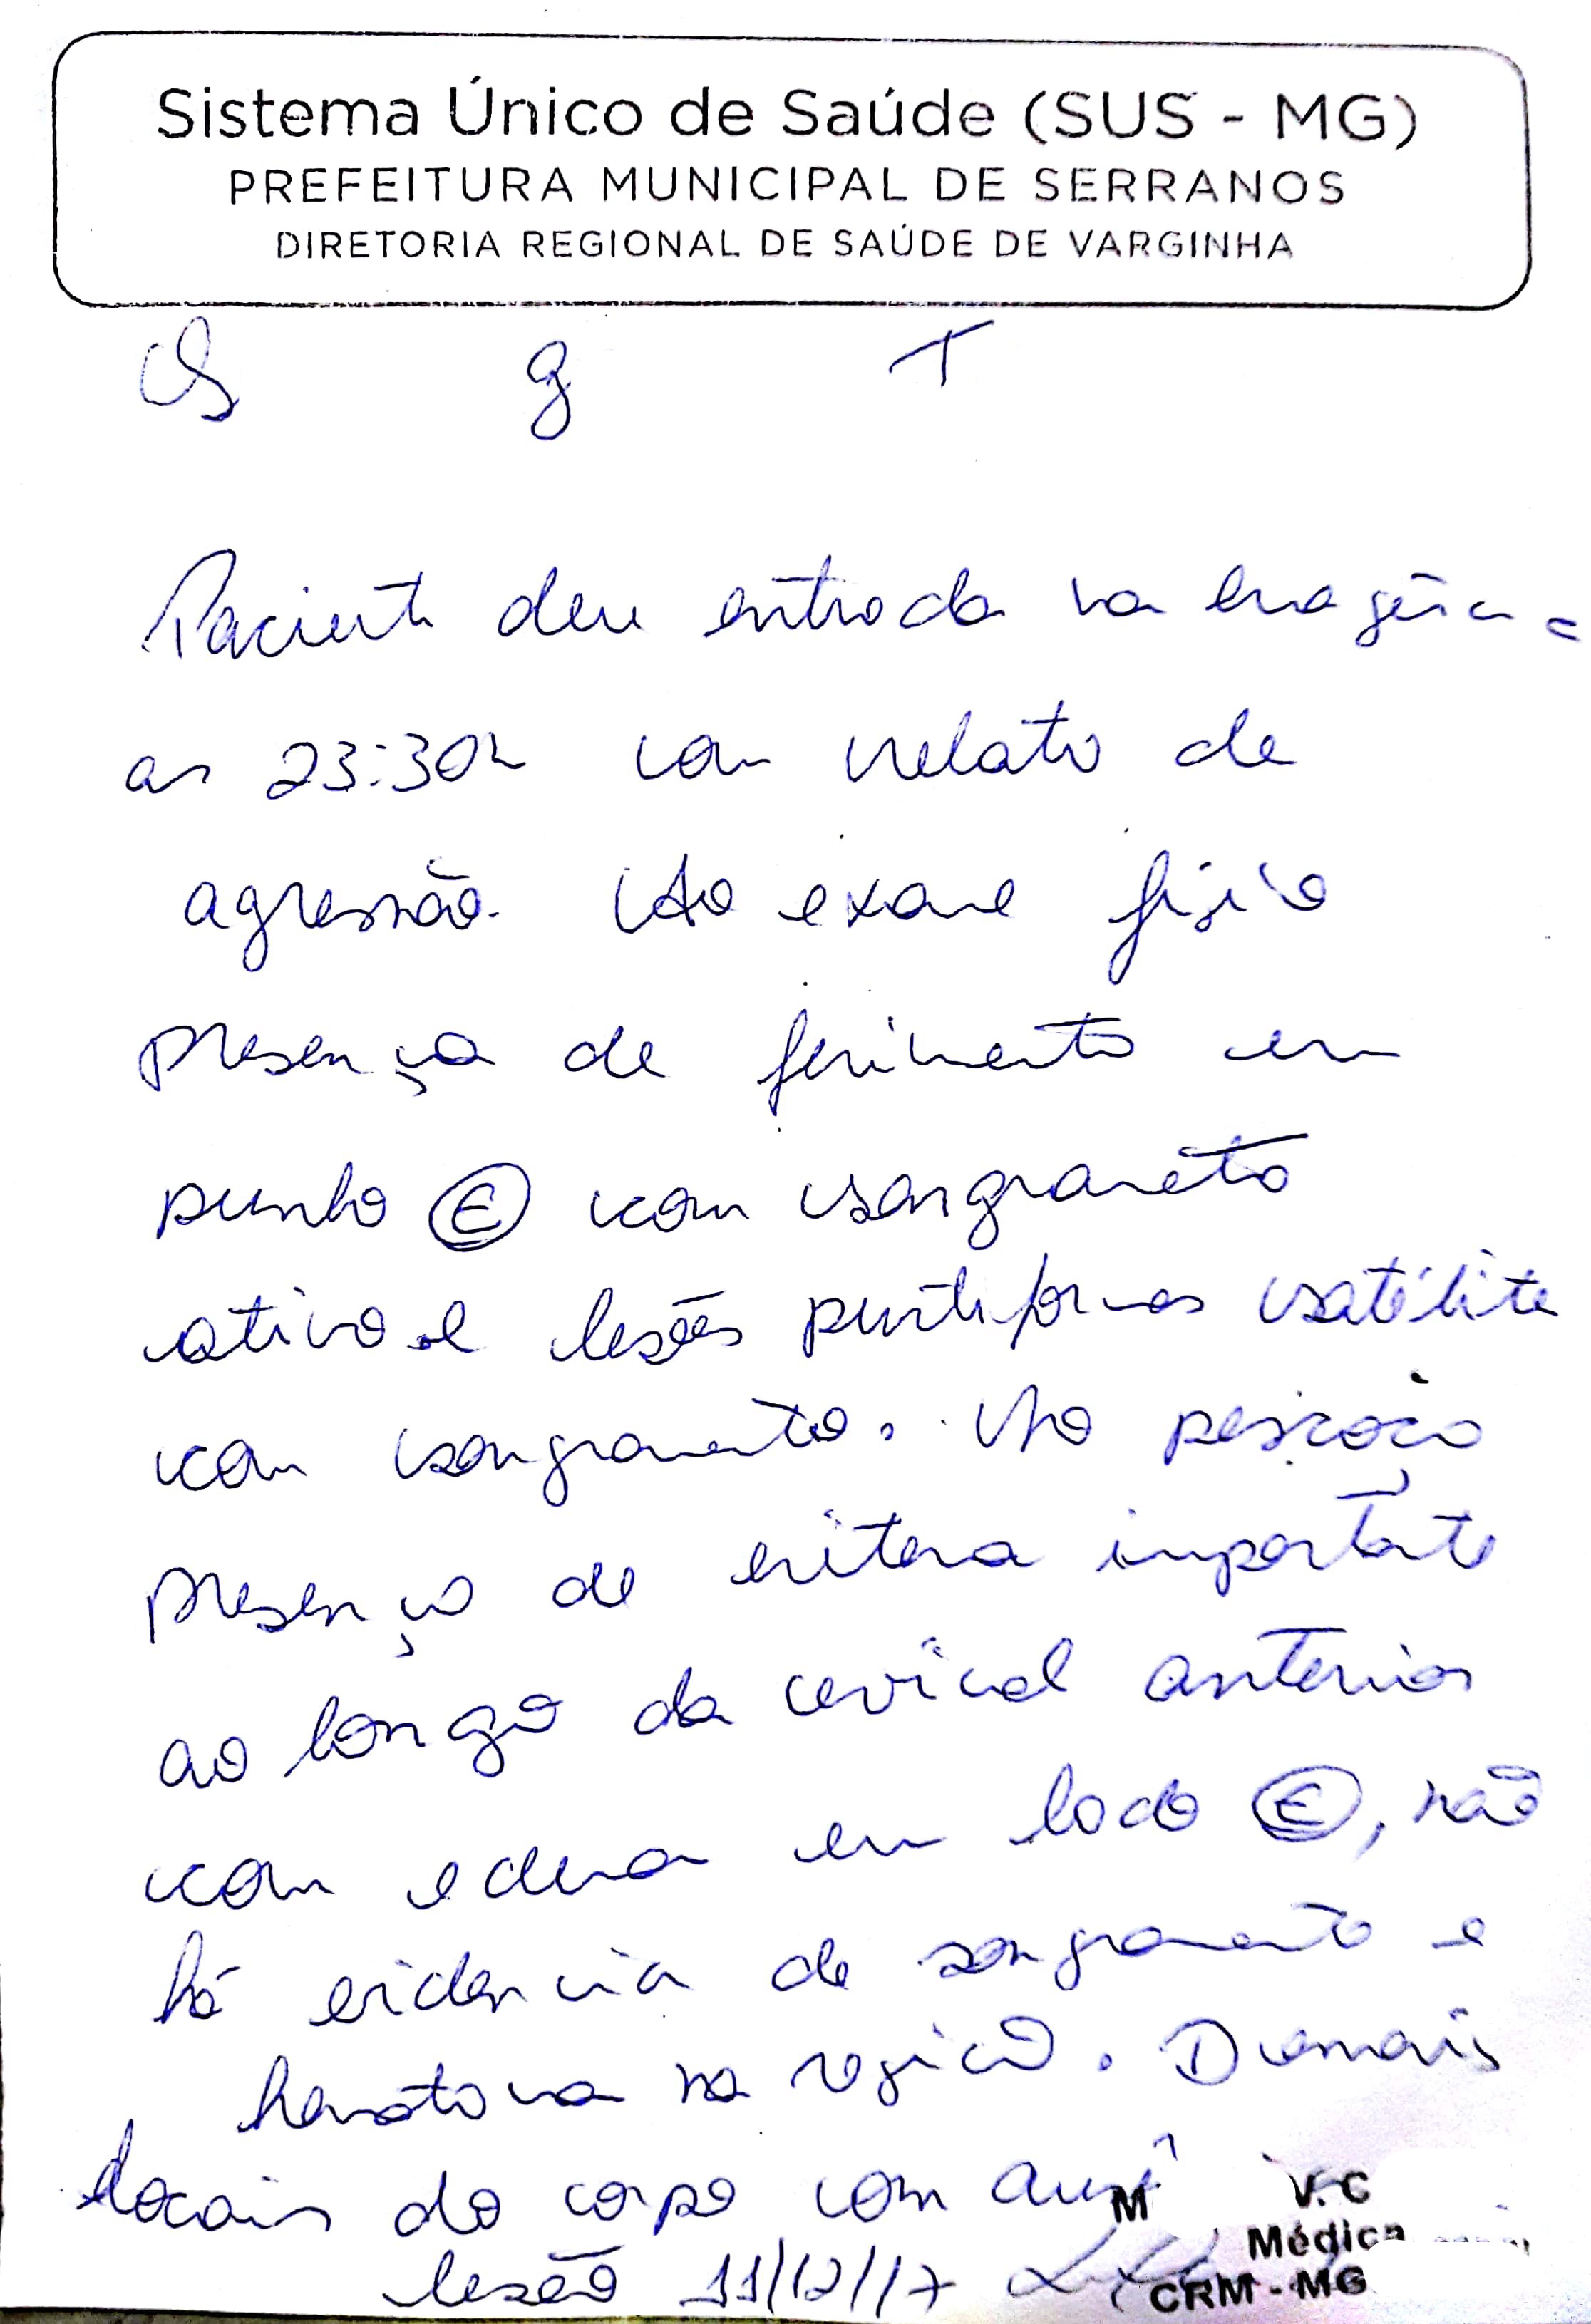 Sistema Único de Saúde (SUS - MG)
PREFEITURA MUNICIPAL DE SERRANOS
DIRETORIA REGIONAL DE SAÚDE DE VARGINHA
G T
Paciente deu entrada na emergência
as 23:30h com relato de
agressão. Ao exame físico
presença de ferimento em
punho E com sangramento
ativo e lesões puntiformes satélite
com sangramento. No pescoço
presença de eritema importante
ao longo da cervical anterior
com edema em lado E, não
há evidencia de sangramento e
hematoma na região. Demais
locais do corpo com
lesão 11/12/17
M V. C
Médica
CRM - MG